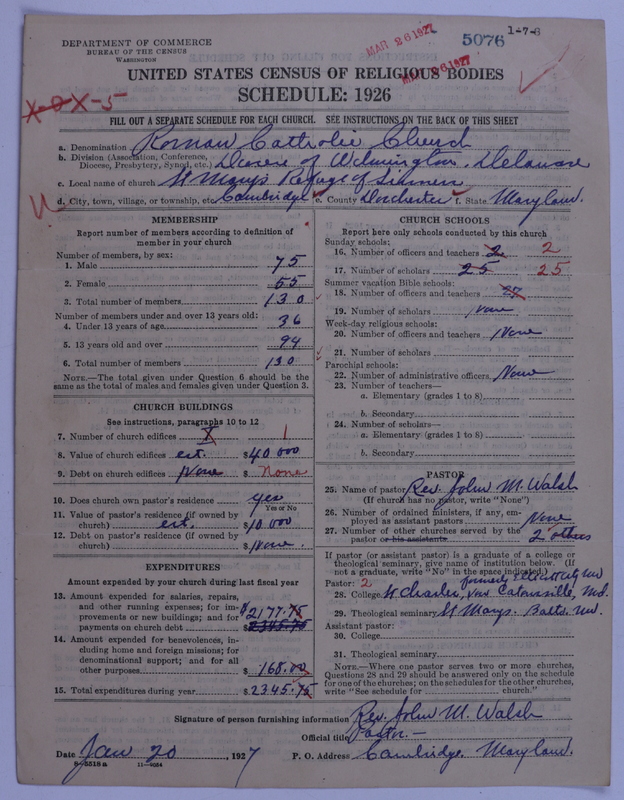 DEPARTMENT OF COMMERCE
BUREAU OF THE CENSUS
WASHINGTON
MAR 26 1927
MAR 26 1927
5076
1-7-6
UNITED STATES CENSUS OF RELIGIOUS BODIES
SCHEDULE: 1926
X-0 X-5
FILL OUT A SEPARATE SCHEDULE FOR EACH CHURCH. SEE INSTRUCTIONS ON THE BACK OF THIS SHEET
a. Denomination Roman Catholic Church
b. Division (Association, Conference, Diocese, Presbytery, Synod, etc.) Diocese of Wilmington, Delaware
c. Local name of church St Mary's Refuge of Sinners
d. City, town, village, or township, etc. Cambridge e. County Dorchester f. State Maryland.
MEMBERSHIP
Report number of members according to definition of
member in your church
Number of members, by sex:
1. Male 75
2. Female 55
3. Total number of members 130
Number of members under and over 13 years old:
4. Under 13 years of age 36
5. 13 years old and over 94
6. Total number of members 130
NOTE.—The total given under Question 6 should be the
same as the total of males and females given under Question 3.
CHURCH BUILDINGS
See instructions, paragraphs 10 to 12
7. Number of church edifices 1 1
8. Value of church edifices est. $40 000
9. Debt on church edifices None $ None
10. Does church own pastor's residence yes
Yes or No
11. Value of pastor's residence (if owned by
church) est. $10 000
12. Debt on pastor's residence (if owned by
church) $None.
EXPENDITURES
Amount expended by your church during last fiscal year
13. Amount expended for salaries, repairs,
and other running expenses; for im-
provements or new buildings; and for
payments on church debt $2177.75
$2345.75
14. Amount expended for benevolences, in-
cluding home and foreign missions; for
denominational support; and for all
other purposes $168.00
15. Total expenditures during year $2345.75
CHURCH SCHOOLS
Report here only schools conducted by this church
Sunday schools:
16. Number of officers and teachers 2 2
17. Number of scholars 25 25
Summer vacation Bible schools:
18. Number of officers and teachers 27
19. Number of scholars None
Week-day religious schools:
20. Number of officers and teachers None
21. Number of scholars
Parochial schools:
22. Number of administrative officers None
23. Number of teachers—
a. Elementary (grades 1 to 8)
b. Secondary
24. Number of scholars—
a. Elementary (grades 1 to 8)
b. Secondary
PASTOR
25. Name of pastor Rev. John M. Walsh
(If church has no pastor, write "None")
26. Number of ordained ministers, if any, em-
ployed as assistant pastors None
27. Number of other churches served by the
pastor or his assistants 2 others
If pastor (or assistant pastor) is a graduate of a college or
theological seminary, give name of institution below. (If
not a graduate, write "No" in the space indicated.)
Pastor: 2 formerly Ellicott City Md
28. College St Charles, now Catonsville, Md.
29. Theological seminary St Mary's. Balto. Md.
Assistant pastor:
30. College
31. Theological seminary
NOTE.—Where one pastor serves two or more churches,
Questions 28 and 29 should be answered only on the schedule
for one of the churches; on the schedules for the other churches,
write "See schedule for church."
Signature of person furnishing information Rev. John M. Walsh
Official title Pastor.—
Date Jan 20, 1927 P. O. Address Cambridge, Maryland.
8-5518a 11-9034